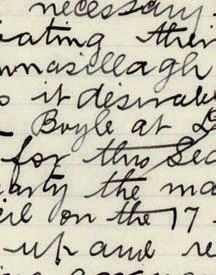 necessary
ating their
wnasillagh
s it desirable
Boyle at
for this Sea
arty the ma
il on the 17
up and re